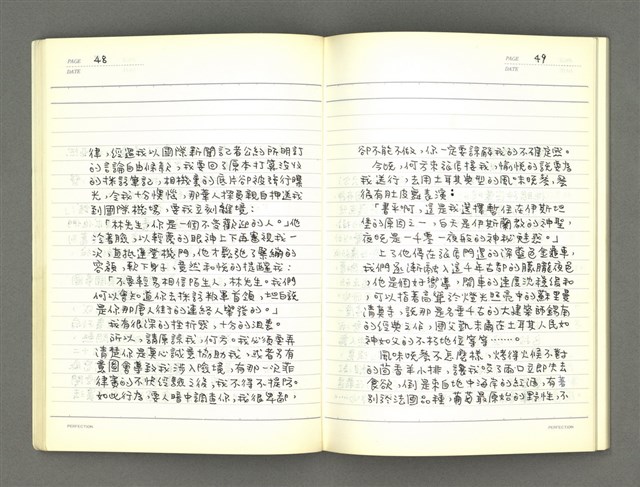 PAGE 48
DATE
律，經過我以國際新聞記者公約所明訂
的言論自由條款，我要回了原本打算沒收
的採訪筆記，相機裏的底片卻被強行曝
光，令我十分懊惱，那華人探員親自押送我
到國際機場，要我立刻離境：
「林先生，你是一個不受歡迎的人。」他
冷著臉，以輕蔑的眼神上下再審視我一
次，直抵達登機門，他才鬆弛了緊繃的
容顏，軟下身子，竟然和悅的提醒我：
「不要輕易相信陌生人，林先生。我們
何以會知道你去採訪叛軍首領，坦白說
是你那唐人街的連絡人舉發的。」
我有很深的挫折感，十分的沮喪。
所以，請原諒我，何方。我必須要弄
清楚你是真心誠意協助我，或者另有
意圖會導致我涉入險境，有那一次菲
律賓的不快經驗之後，我不得不提防。
如此行為，要人暗中調查你，我很卑鄙，
PERFECTION
PAGE 49
DATE
卻不能不做，你一定要諒解我的不確定感。
今晚，何方來旅店接我，愉悅的說要為
我送行，去用土耳其典型的風味晚餐，餐
後有肚皮舞表演：
「書平啊，這是我選擇暫住在伊斯坦
堡的原因之一，白天是伊斯蘭教的神聖，
夜晚是一千零一夜般的神秘魅惑。」
上了他停在旅店門邊的深藍色金龜車，
我們逐漸融入這千年古都的朦朧夜色
，他是個好嚮導，開車的速度沈穩緩和
，可以指著高聳於燈光照亮中的蘇里曼
清真寺，說那是名垂千古的大建築師錫南
的經典之作，國父凱末爾在土耳其人民如
神如父的不朽地位等等⋯⋯。
風味晚餐不怎麼樣，烤得火候不對
的茴香羊小排，讓我咬了兩口立即失去
食欲，倒是來自地中海岸的紅酒，有著
別於法國品種，葡萄最原始的野性，不
PERFECTION